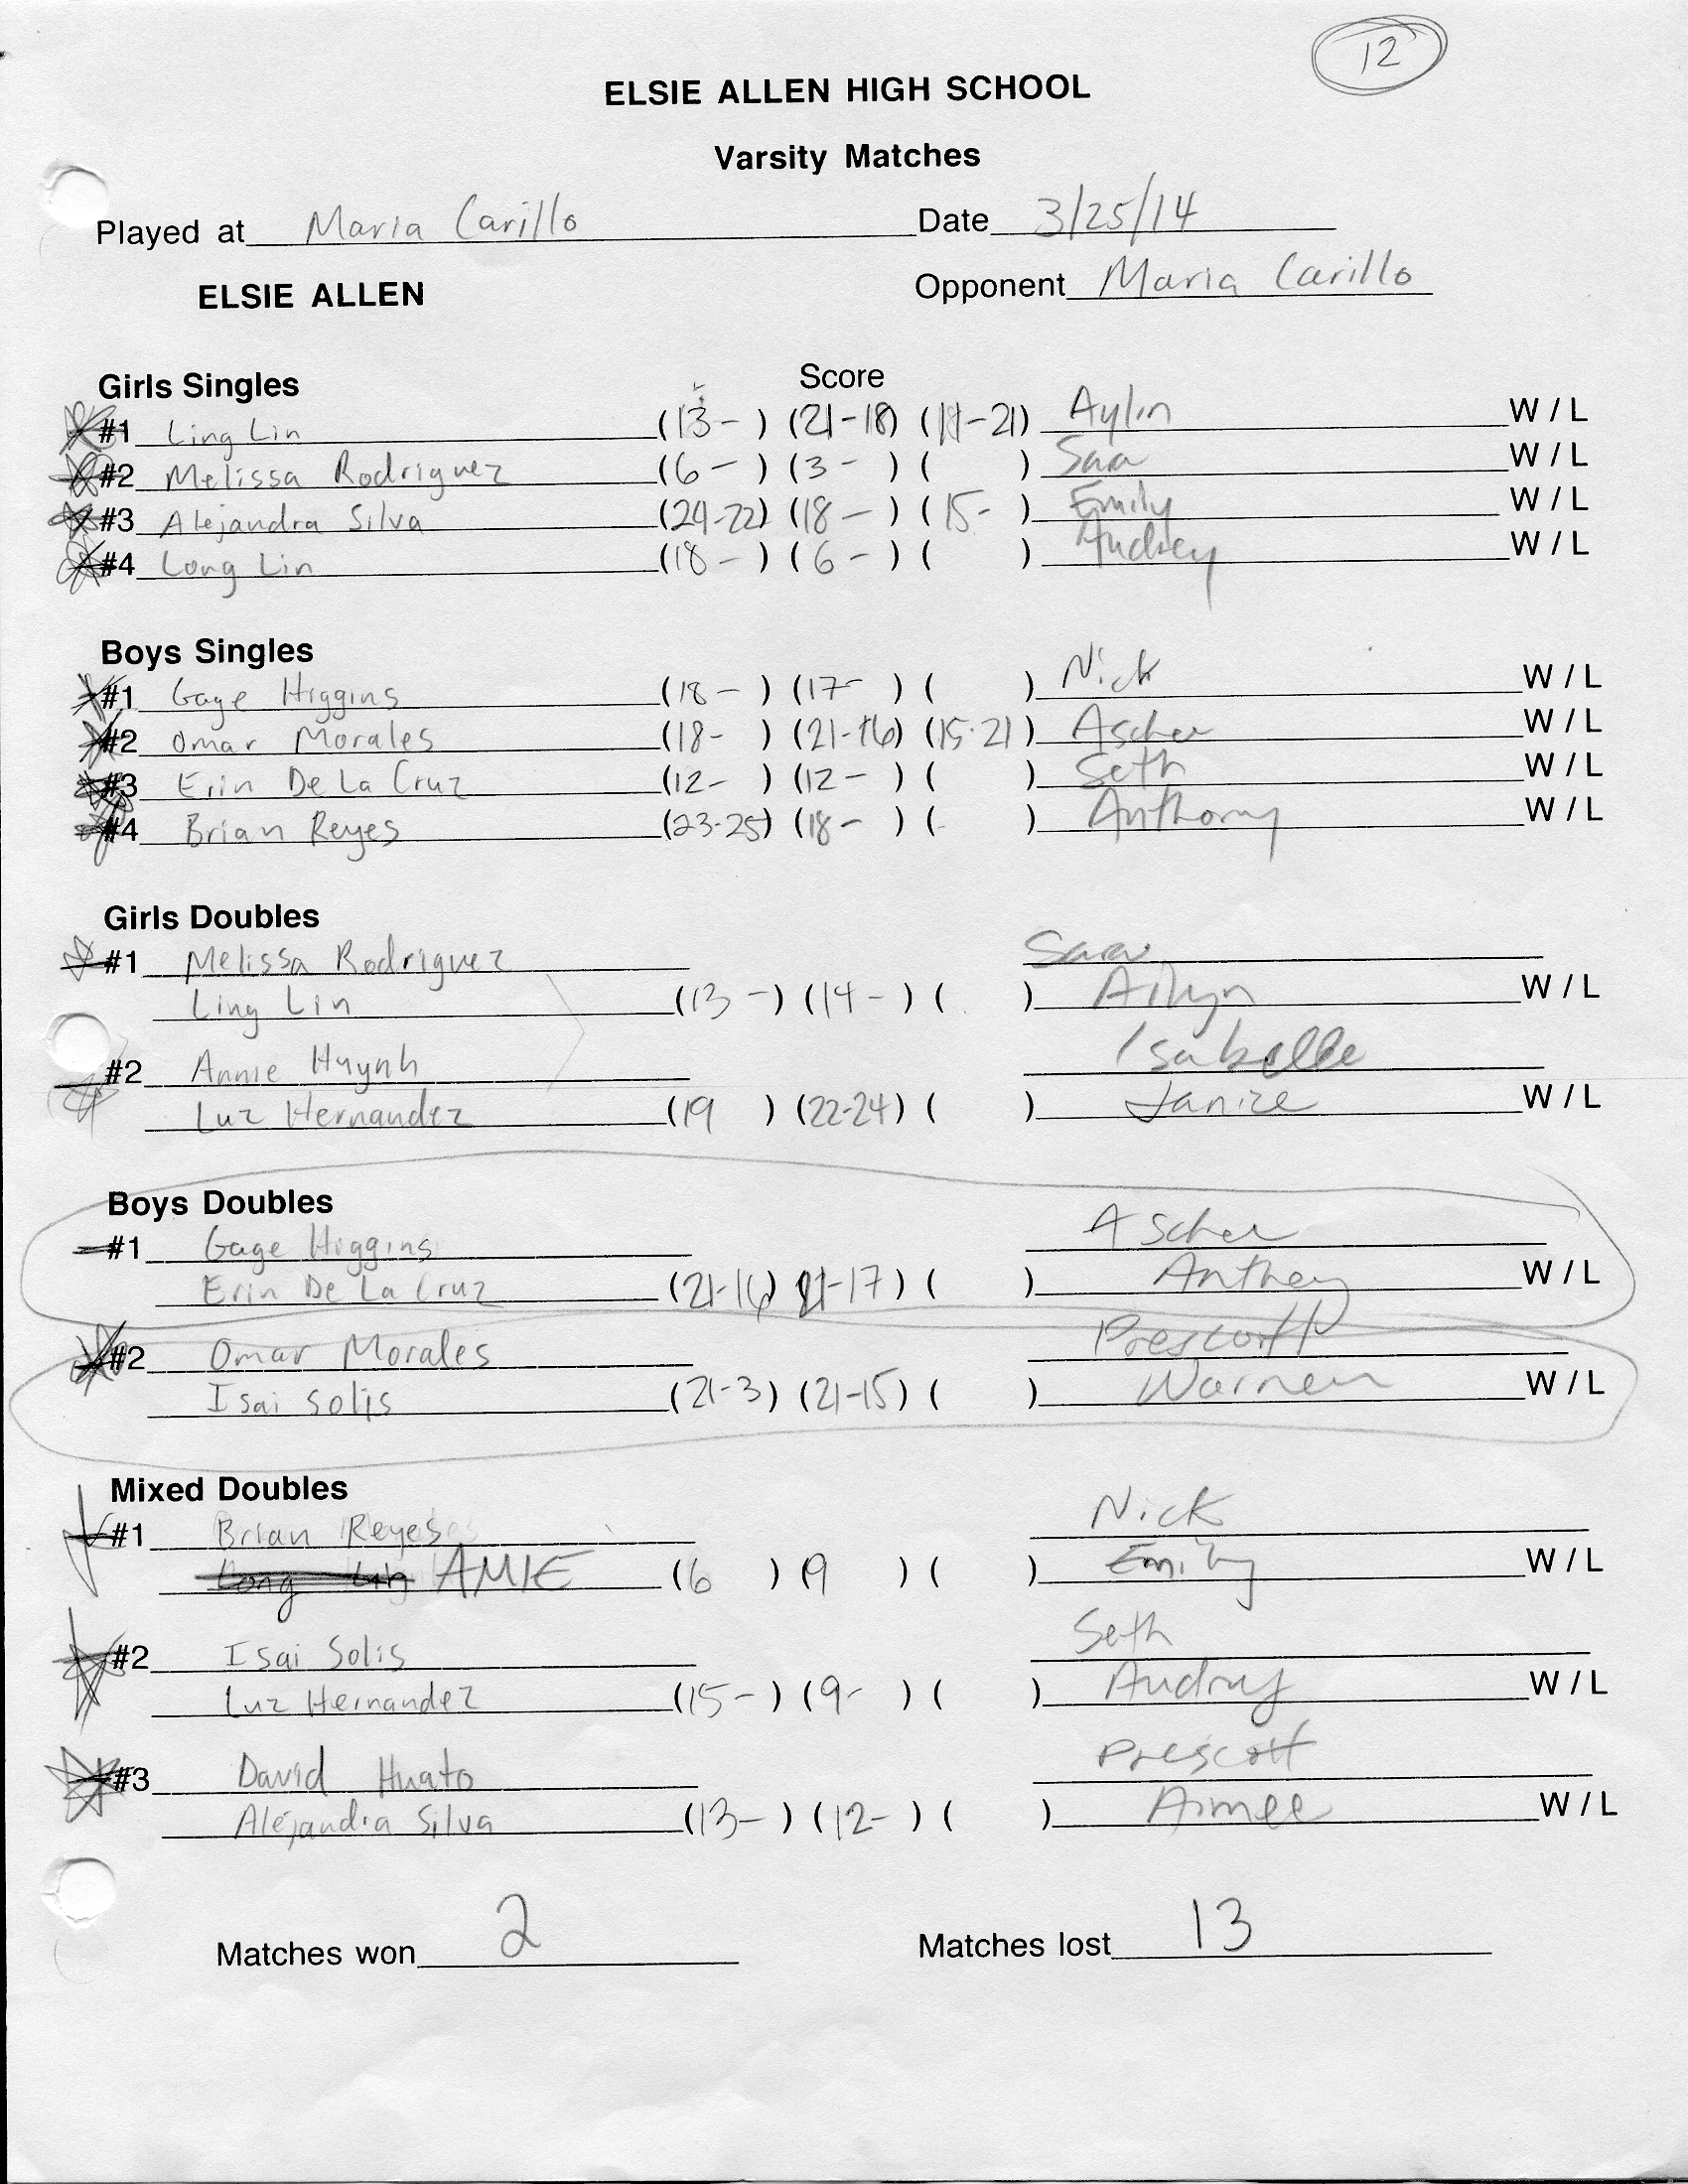 12
ELSIE ALLEN HIGH SCHOOL
Varsity Matches
Played at Maria Carillo Date 3/25/14
ELSIE ALLEN Opponent Maria Carillo
Girls Singles Score
#1 Ling Lin (13- ) (21-18) (19-21) Aylin W / L
#2 Melissa Rodriguez (6 - ) (3 - ) ( ) Sara W / L
#3 Alejandra Silva (24-22) (18 - ) (15- ) Emily W / L
#4 Long Lin (18 - ) (6 - ) ( ) Audrey W / L
Boys Singles
#1 Gage Higgins (18 - ) (17- ) ( ) Nick W / L
#2 Omar Morales (18- ) (21-16) (15-21) Ascher W / L
#3 Erin De La Cruz (12- ) (12 - ) ( ) Seth W / L
#4 Brian Reyes (23-25) (18 - ) ( ) Anthony W / L
Girls Doubles
#1 Melissa Rodriguez Sara
Ling Lin (13 -) (14 - ) ( ) Ailyn W / L
#2 Annie Huynh Isabelle
Luz Hernandez (19 ) (22-24) ( ) Janize W / L
Boys Doubles
#1 Gage Higgins Ascher
Erin De La Cruz (21-16) (21-17) ( ) Anthony W / L
#2 Omar Morales Prescott
Isai Solis (21-3) (21-15) ( ) Warren W / L
Mixed Doubles
#1 Brian Reyes Nick
Long Lin AMIE (6 ) (9 ) ( ) Emily W / L
#2 Isai Solis Seth
Luz Hernandez (15 - ) (9- ) ( ) Audrey W / L
#3 David Huato Prescott
Alejandra Silva (13- ) (12- ) ( ) Aimee W / L
Matches won 2 Matches lost 13